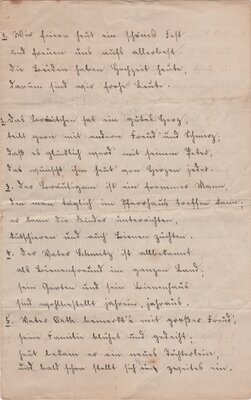 1. Wir feiern heut ein schönes Fest
und freuen uns aufs allerbest.
die Beiden haben Hochzeit heute,
darum sind wir frohe Leute.
2. das Bräutchen hat ein gutes Herz,
teilt gern mit andern Freud' und Schmerz,
daß es glücklich werd' mit seinem Peter,
das wünscht ihm heut' von Herzen jeder.
3. der Bräutigam ist ein frommer Mann,
den man täglich im Pfarrhaus treffen kann,
er kann die Kinder unterrichten,
kutschieren und auch Bienen züchten.
4. der Vater Schmitz ist allbekannt
als Bienenfreund im ganzen Land,
sein Garten und sein Bienenhaus
sind wohlbestellt jahrein, jahraus.
5. Vater Orth bemerkt's mit großer Freud',
seine Familie blüht und gedeiht;
heut bekam er ein neues Töchterlein,
und bald schon stellt sich ein zweites ein.